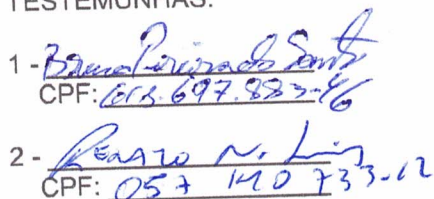 TESTEMUNHAS:
1 - Bruna Pereira do Santos
CPF: 697.883-46
2 - Renato N. Lima
CPF: 057 140 733-12